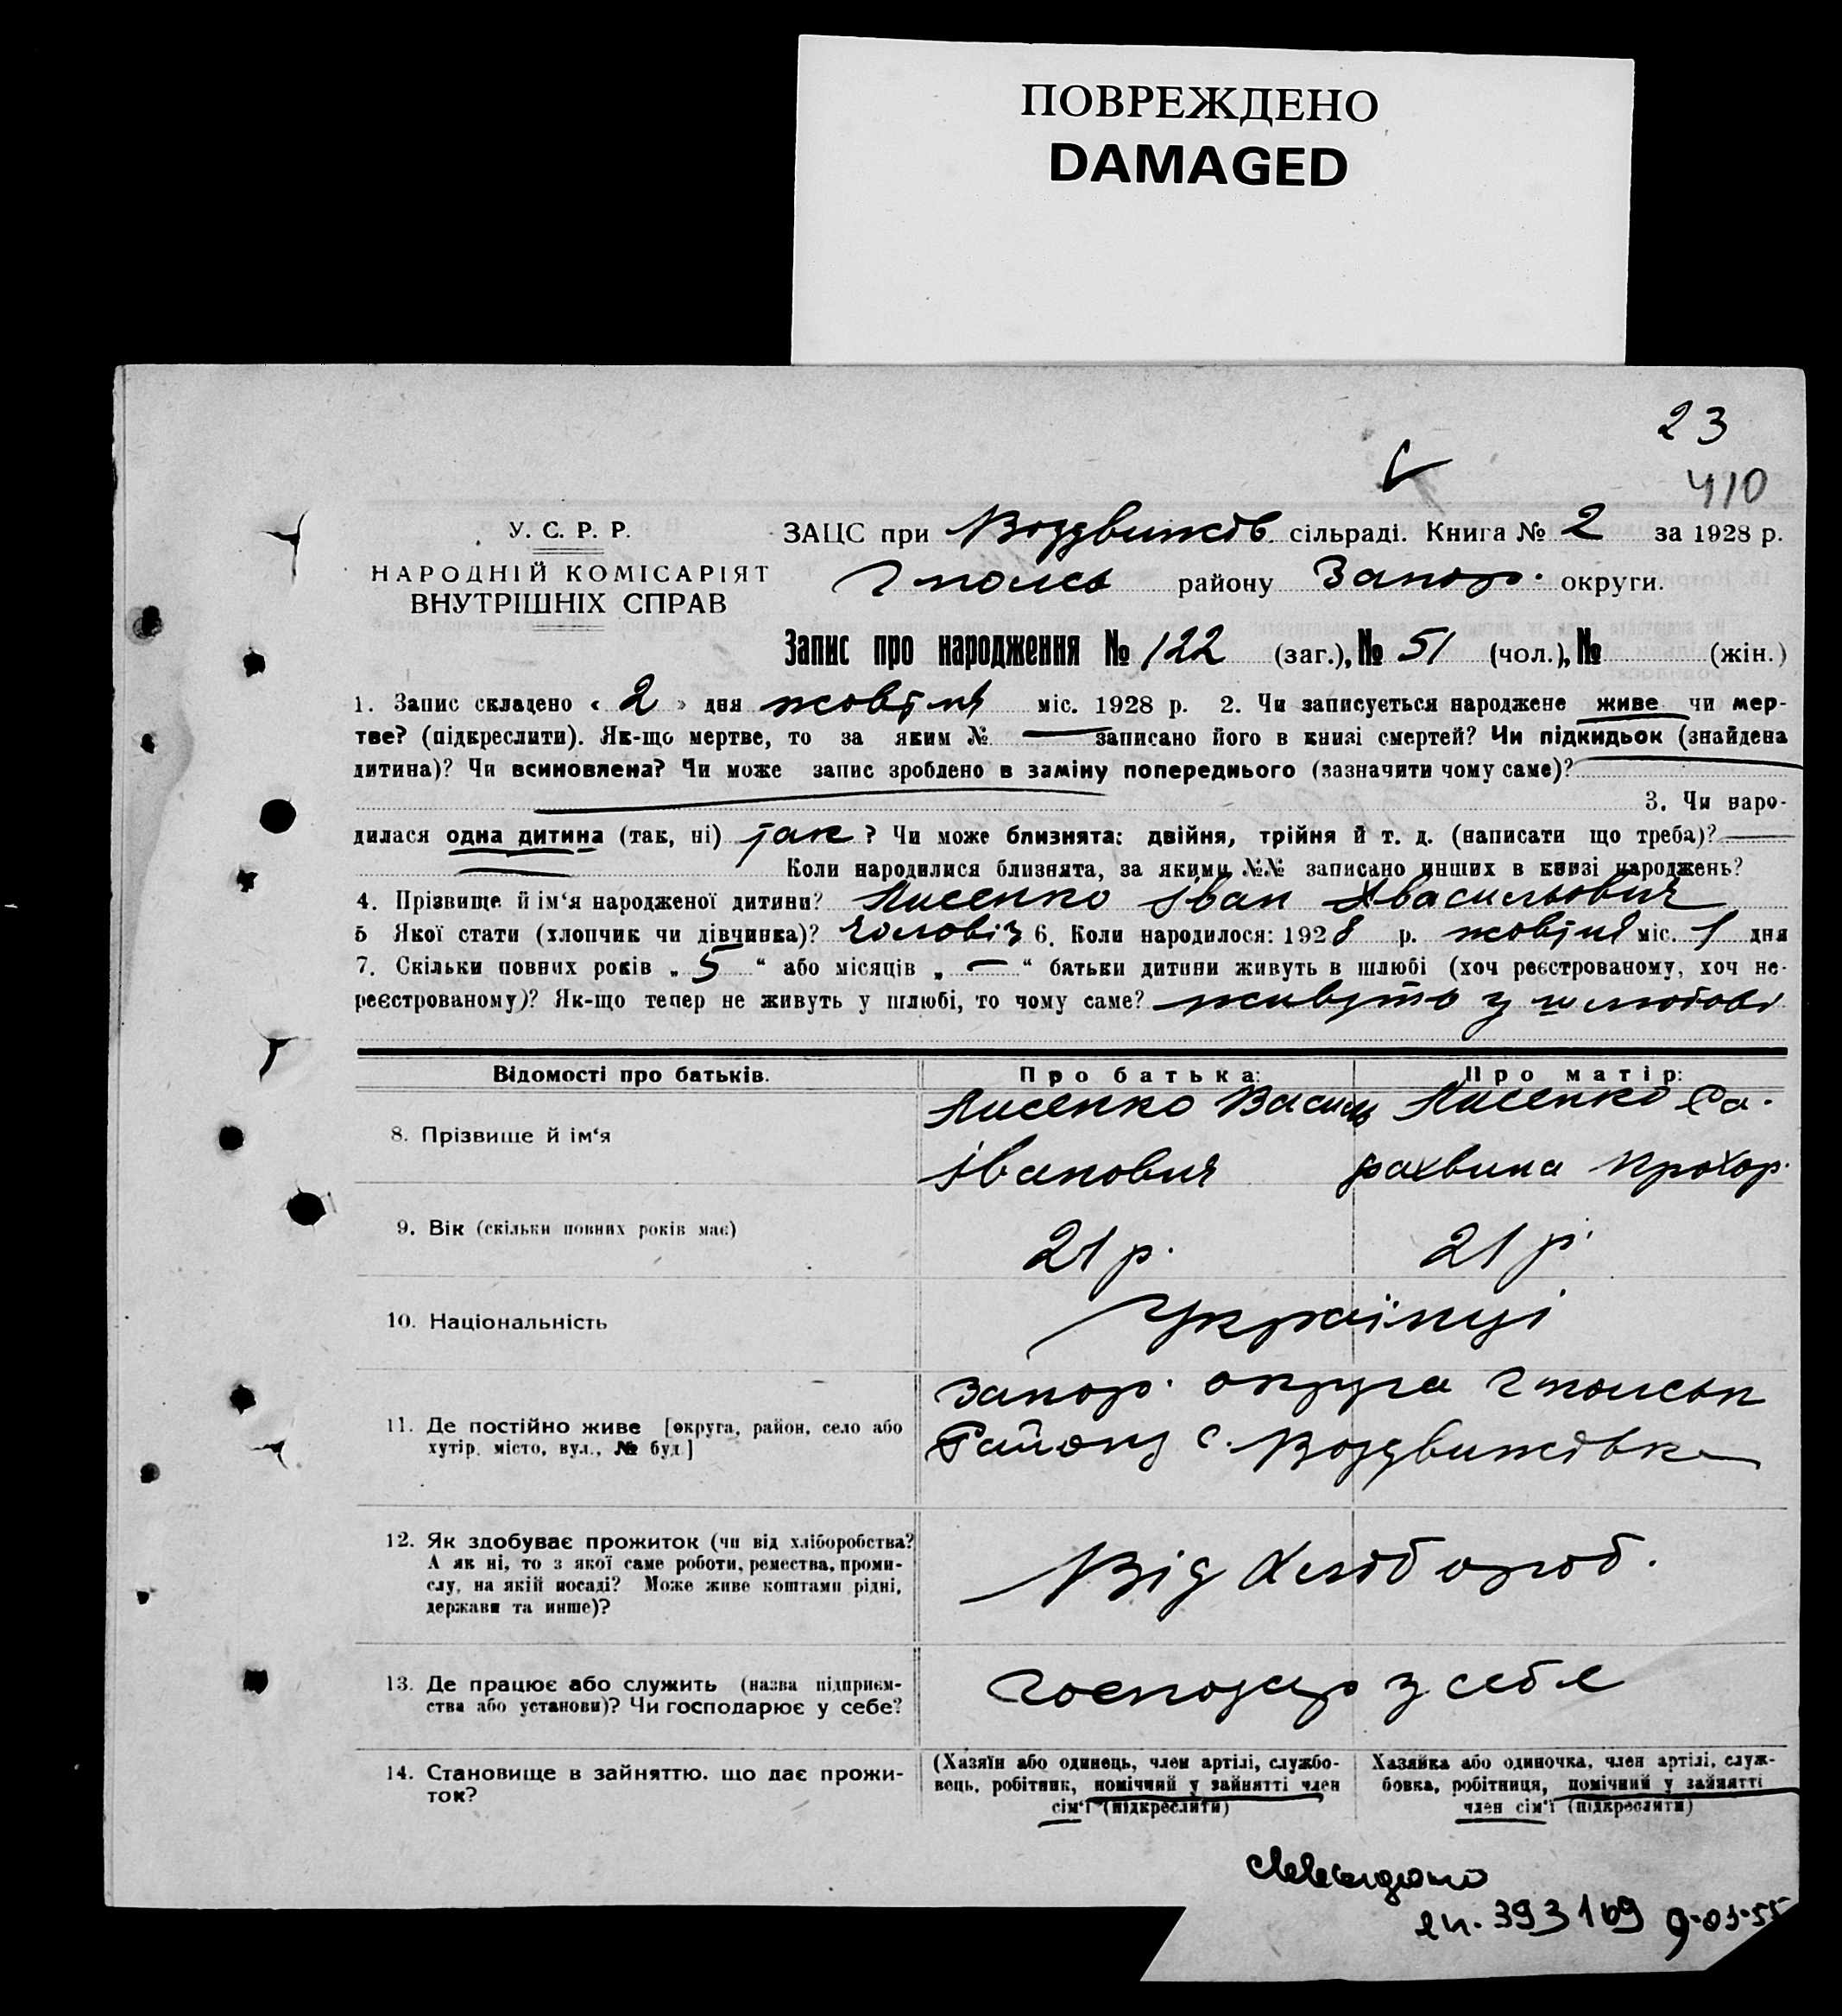 ПОВРЕЖДЕНО
DAMAGED
23
410
У. С. Р. Р.
НАРОДНІЙ КОМІСАРІЯТ
ВНУТРІШНІХ СПРАВ
ЗАЦС при Воздвижів. сільраді. Книга № 2 за 1928 р.
Гполсь району Запор. округи.
Запис про народження № 122 (заг.), № 51 (чол.), № (жін.)
1. Запис складено « 2 » дня жовтня міс. 1928 р. 2. Чи записується народжене живе чи мер-
тве? (підкреслити). Як-що мертве, то за яким № — записано його в книзі смертей? Чи підкидьок (знайдена
дитина)? Чи всиновлена? Чи може запис зроблено в заміну попереднього (зазначити чому саме)?
3. Чи наро-
дилася одна дитина (так, ні) так? Чи може близнята: двійня, трійня й т. д. (написати що треба)?
Коли народилися близнята, за якими №№ записано инших в книзі народжень?
4. Прізвище й ім‘я народженої дитини? Лисенко Іван Васильович
5 Якої стати (хлопчик чи дівчинка)? чоловіч 6. Коли народилося: 1928 р. жовтня міс. 1 дня
7. Скільки повних років „ 5 “ або місяців „ — “ батьки дитини живуть в шлюбі (хоч реєстрованому, хоч не-
реєстрованому)? Як-що тепер не живуть у шлюбі, то чому саме? живуть у шлюбові
Відомості про батьків. Про батька: Про матір:
8. Прізвище й ім‘я Лисенко Василь Іванович Лисенко Са- рахвина Прохор.
9. Вік (скільки повних років має) 21 р. 21 р.
10. Національність Українці
11. Де постійно живе [округа, район, село або
хутір, місто, вул., № буд.]
Запор. округа Гполськ
Району с. Воздвижівка
12. Як здобуває прожиток (чи від хліборобства?
А як ні, то з якої саме роботи, ремества, проми-
слу, на якій посаді? Може живе коштами рідні,
держави та инше)?
Від хлібороб.
13. Де працює або служить (назва підприєм-
ства або установи)? Чи господарює у себе?
Господар у себе
14. Становище в зайняттю, що дає прожи-
ток?
(Хазяїн або одинець, член артілі, службо-
вець, робітник, помічний у зайнятті член
сім‘ї (підкреслити)
Хазяйка або одиночка, член артілі, служ-
бовка, робітниця, помічний у зайнятті
член сім‘ї (підкреслити)
393169 9-03-55